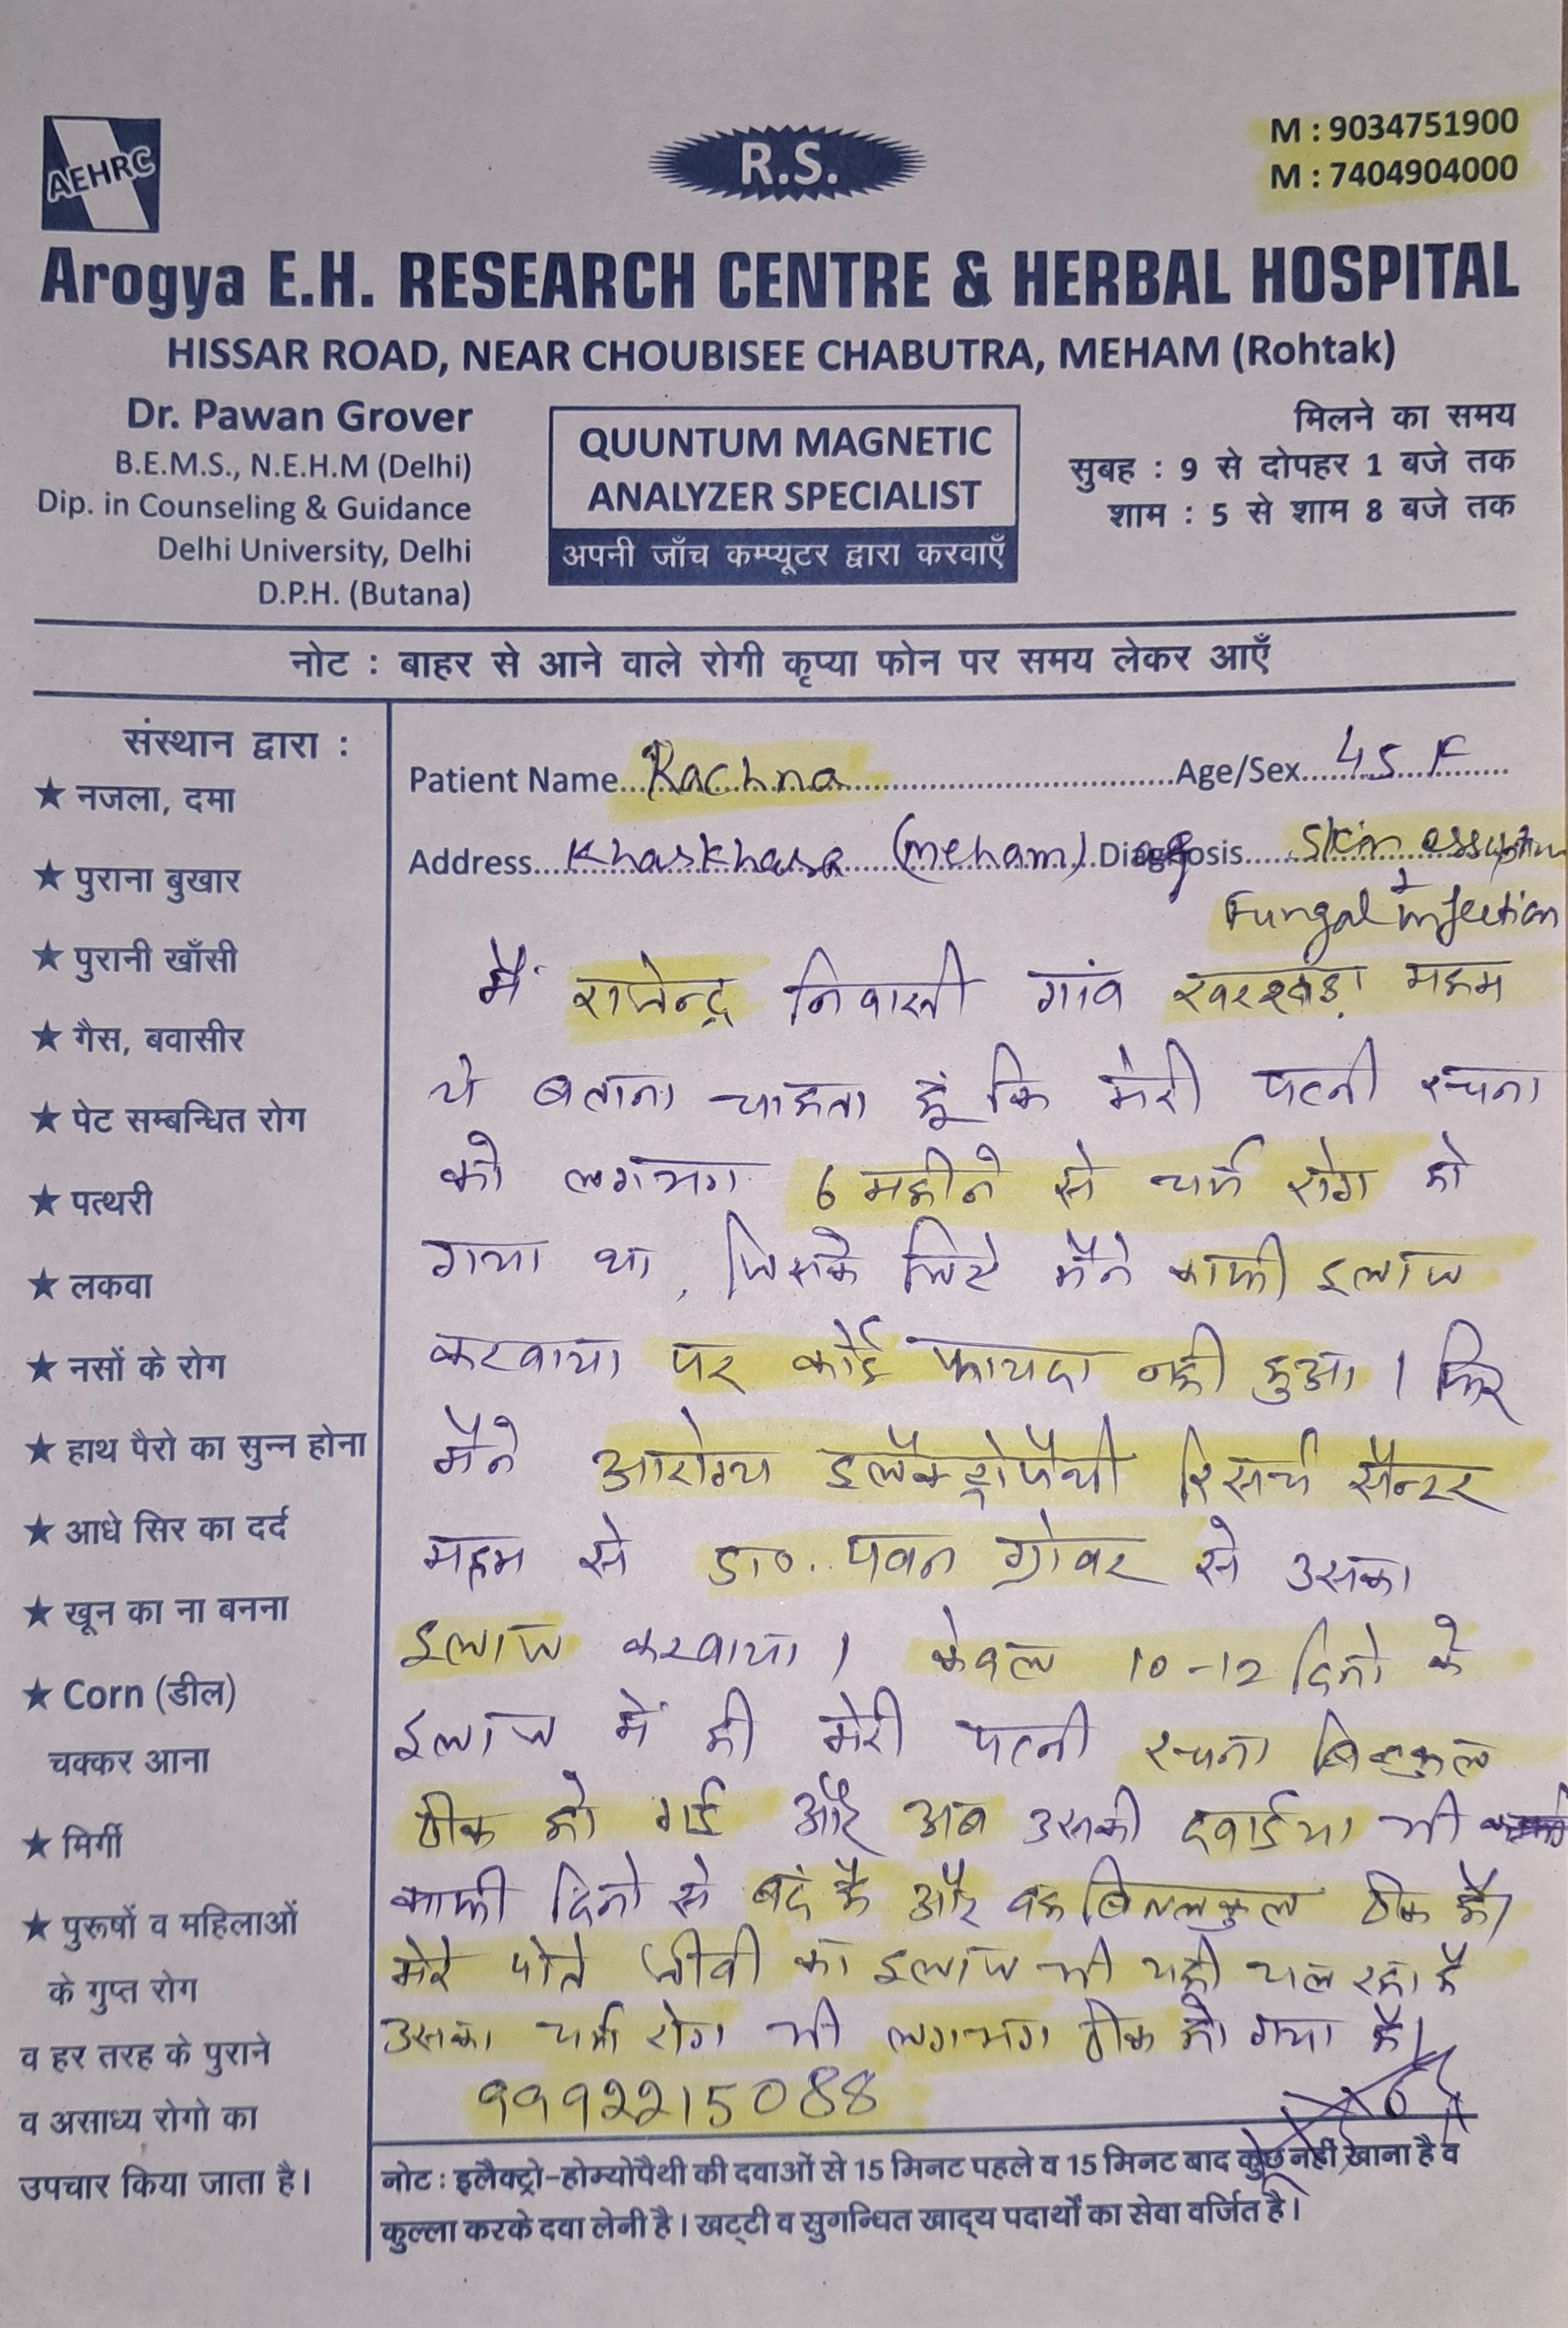 AEHRC
R.S.
M : 9034751900
M : 7404904000
Arogya E.H. RESEARCH CENTRE & HERBAL HOSPITAL
HISSAR ROAD, NEAR CHOUBISEE CHABUTRA, MEHAM (Rohtak)
Dr. Pawan Grover
B.E.M.S., N.E.H.M (Delhi)
Dip. in Counseling & Guidance
Delhi University, Delhi
D.P.H. (Butana)
QUUNTUM MAGNETIC
ANALYZER SPECIALIST
अपनी जाँच कम्प्यूटर द्वारा करवाएँ
मिलने का समय
सुबह : 9 से दोपहर 1 बजे तक
शाम : 5 से शाम 8 बजे तक
नोट : बाहर से आने वाले रोगी कृप्या फोन पर समय लेकर आएँ
संस्थान द्वारा :
★ नजला, दमा
★ पुराना बुखार
★ पुरानी खाँसी
★ गैस, बवासीर
★ पेट सम्बन्धित रोग
★ पत्थरी
★ लकवा
★ नसों के रोग
★ हाथ पैरो का सुन्न होना
★ आधे सिर का दर्द
★ खून का ना बनना
★ Corn (डील)
चक्कर आना
★ मिर्गी
★ पुरूषों व महिलाओं
के गुप्त रोग
व हर तरह के पुराने
व असाध्य रोगो का
उपचार किया जाता है।
Patient Name Rachna Age/Sex 45 F
Address Kharkhara (meham) Diagnosis Skin
Fungal infection
मैं राजेन्द्र निवासी गांव खरखड़ा महम
ये बताना चाहता हूं कि मेरी पत्नी रचना
को लगभग 6 महीने से चर्म रोग हो
गया था, जिसके लिए मैने काफी इलाज
करवाया पर कोई फायदा नही हुआ। फिर
मैने आरोग्य इलैक्ट्रोपैथी रिसर्च सैन्टर
महम से डा०. पवन ग्रोवर से उसका
इलाज करवाया। केवल 10-12 दिनो के
इलाज में ही मेरी पत्नी रचना बिल्कुल
ठीक हो गई और अब उसकी दवाईया भी
काफी दिनो से बंद है और वह बिलकुल ठीक है।
मेरे पोते का इलाज भी यही चल रहा है
उसका चर्म रोग भी लगभग ठीक हो गया है।
9992215088
नोट : इलैक्ट्रो-होम्योपैथी की दवाओं से 15 मिनट पहले व 15 मिनट बाद कुछ नहीं खाना है व
कुल्ला करके दवा लेनी है। खट्टी व सुगन्धित खाद्य पदार्थों का सेवा वर्जित है।